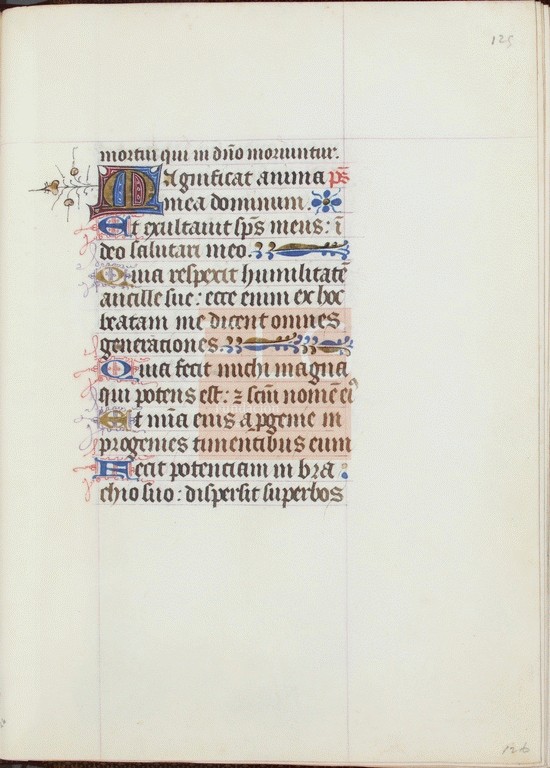 125
mortui qui in dño moriuntur.
Magnificat anima ps̄
mea dominum.
Et exultauit sp̄s meus: ī
deo salutari meo.
Quia respexit humilitatē
ancille sue: ecce enim ex hoc
beatam me dicent omnes
generationes.
Quia fecit michi magna
qui potens est: ⁊ scm̄ nomē eiꝰ
Et mīa eius a ꝓgenie in
progenies timentibus eum
Fecit potenciam in bra
chio suo: dispersit superbos
fundación
126